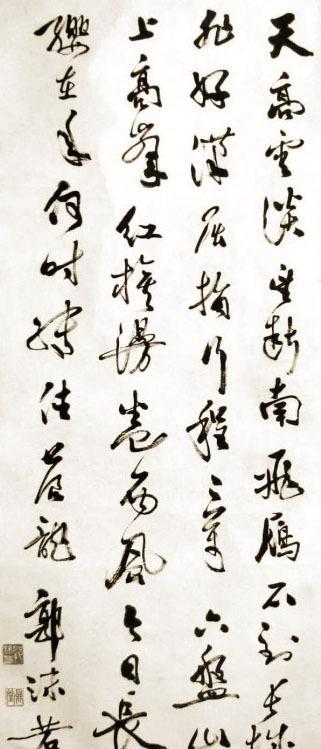 天高雲淡望断南飛雁不到長城
非好漢屈指行程二萬六盤山
上高峯紅旗漫卷西風今日長
纓在手何時縛住蒼龍郭沫若